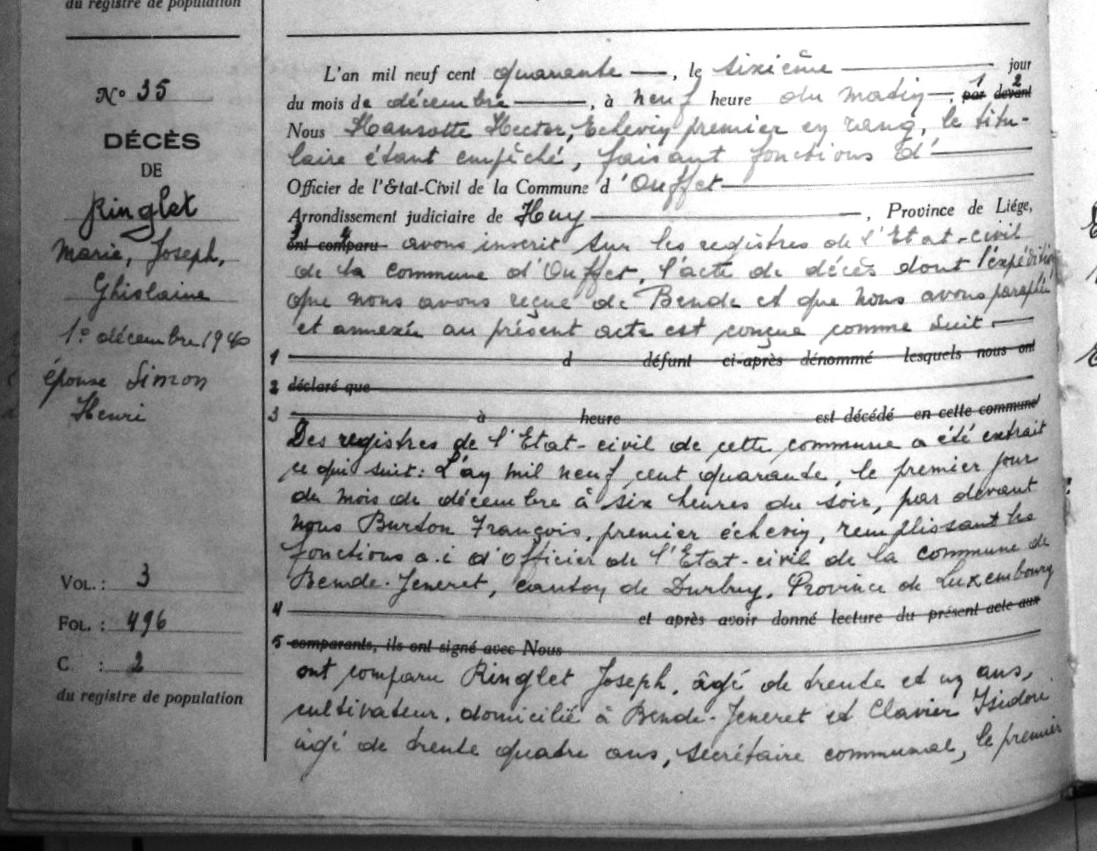 du registre de population
N° 35
DÉCÈS
DE
Ringlet
Marie, Joseph,
Ghislaine
1° décembre 1940
épouse Simon
Henri
VOL. : 3
FOL. : 496
C : 2
du registre de population
L'an mil neuf cent quarante, le sixième jour
du mois de décembre, à neuf heure du matin, 1 par 2 devant
Nous Hansotte Hector, Echevin premier en rang, le titu-
laire étant empêché, faisant fonctions d'
Officier de l'Etat-Civil de la Commune d'Ouffet
Arrondissement judiciaire de Huy, Province de Liége,
3 ont 4 comparu avons inscrit sur les registres de l'Etat-civil
de la commune d'Ouffet, l'acte de décès dont l'expédition
que nous avons reçue de Bende et que nous avons paraphé
et annexée au présent acte est conçue comme suit.
1 d défunt ci-après dénommé lesquels nous ont
2 déclaré que
3 à heure est décédé en cette commune
Des registres de l'Etat-civil de cette commune a été extrait
ce qui suit: L'an mil neuf cent quarante, le premier jour
du mois de décembre à six heures du soir, par devant
nous Burton François, premier échevin, remplissant les
fonctions a.i d'Officier de l'Etat-civil de la commune de
Bende-Jeneret, canton de Durbuy, Province de Luxembourg
4 et après avoir donné lecture du présent acte aux
5 comparants, ils ont signé avec Nous
ont comparu Ringlet Joseph, âgé de trente et un ans,
cultivateur, domicilié à Bende-Jeneret et Clavier Isidore
âgé de trente quatre ans, secrétaire communal, le premier